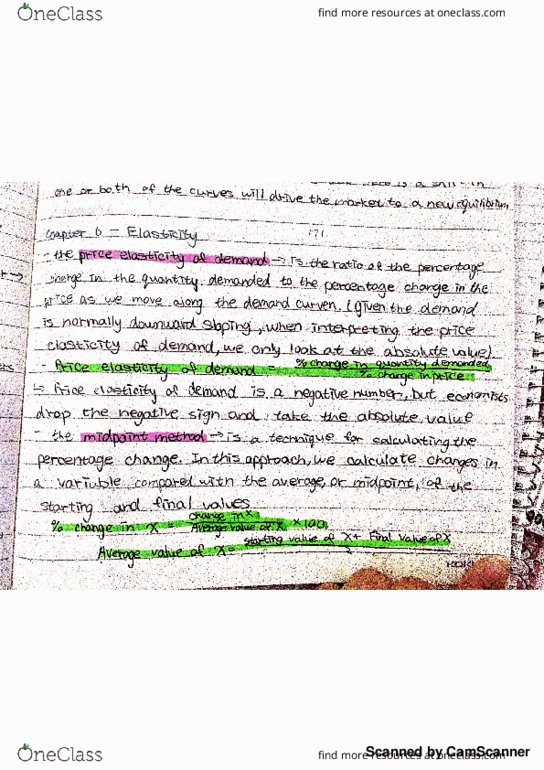 OneClass
find more resources at oneclass.com
one or both of the curves will drive the market to a new equilibrium
Chapter 6 = Elasticity
- the price elasticity of demand → is the ratio of the percentage
change in the quantity demanded to the percentage change in the
price as we move along the demand curven. (given the demand
is normally downward sloping, when interpreting the price
elasticity of demand, we only look at the absolute value)
- Price elasticity of demand = % change in quantity demanded
% change in price
↳ Price elasticity of demand is a negative number, but economists
drop the negative sign and take the absolute value
- the midpoint method → is a technique for calculating the
percentage change. In this approach, we calculate changes in
a variable compared with the average, or midpoint, of the
starting and final values
change in x
% change in x = Average value of x ×100
starting value of x + Final value of x
Average value of x =
OneClass
find more resources at oneclass.com
Scanned by CamScanner